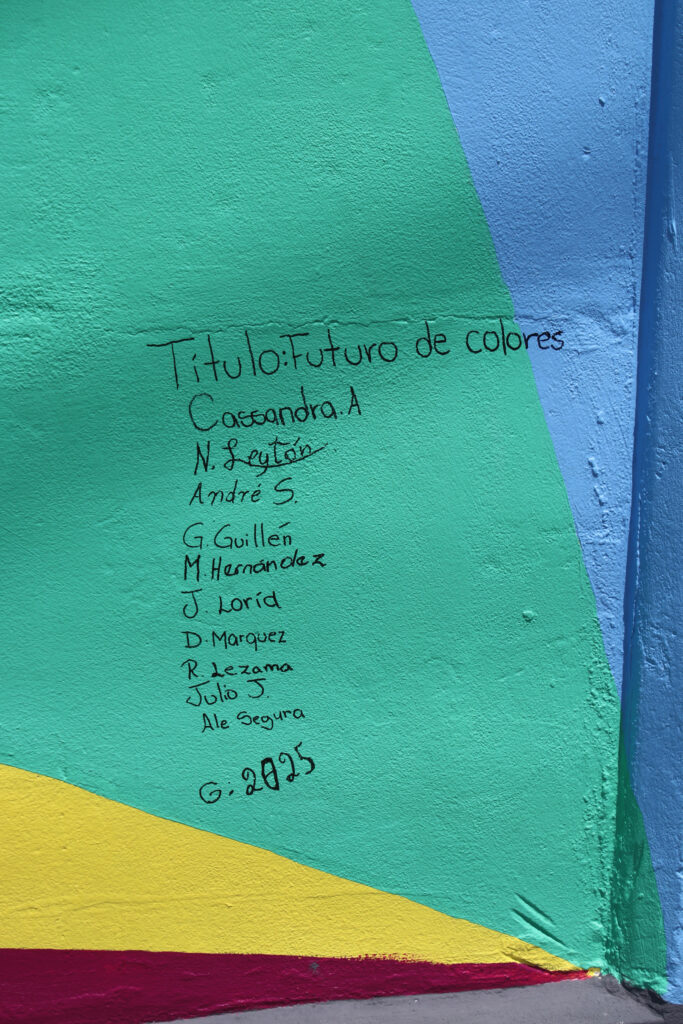 Título:Futuro de colores
Cassandra.A
N. Leytón
André S.
G. Guillén
M. Hernández
J. Loríd
D. Marquez
R. Lezama
Julio J.
Ale Segura
G: 2025